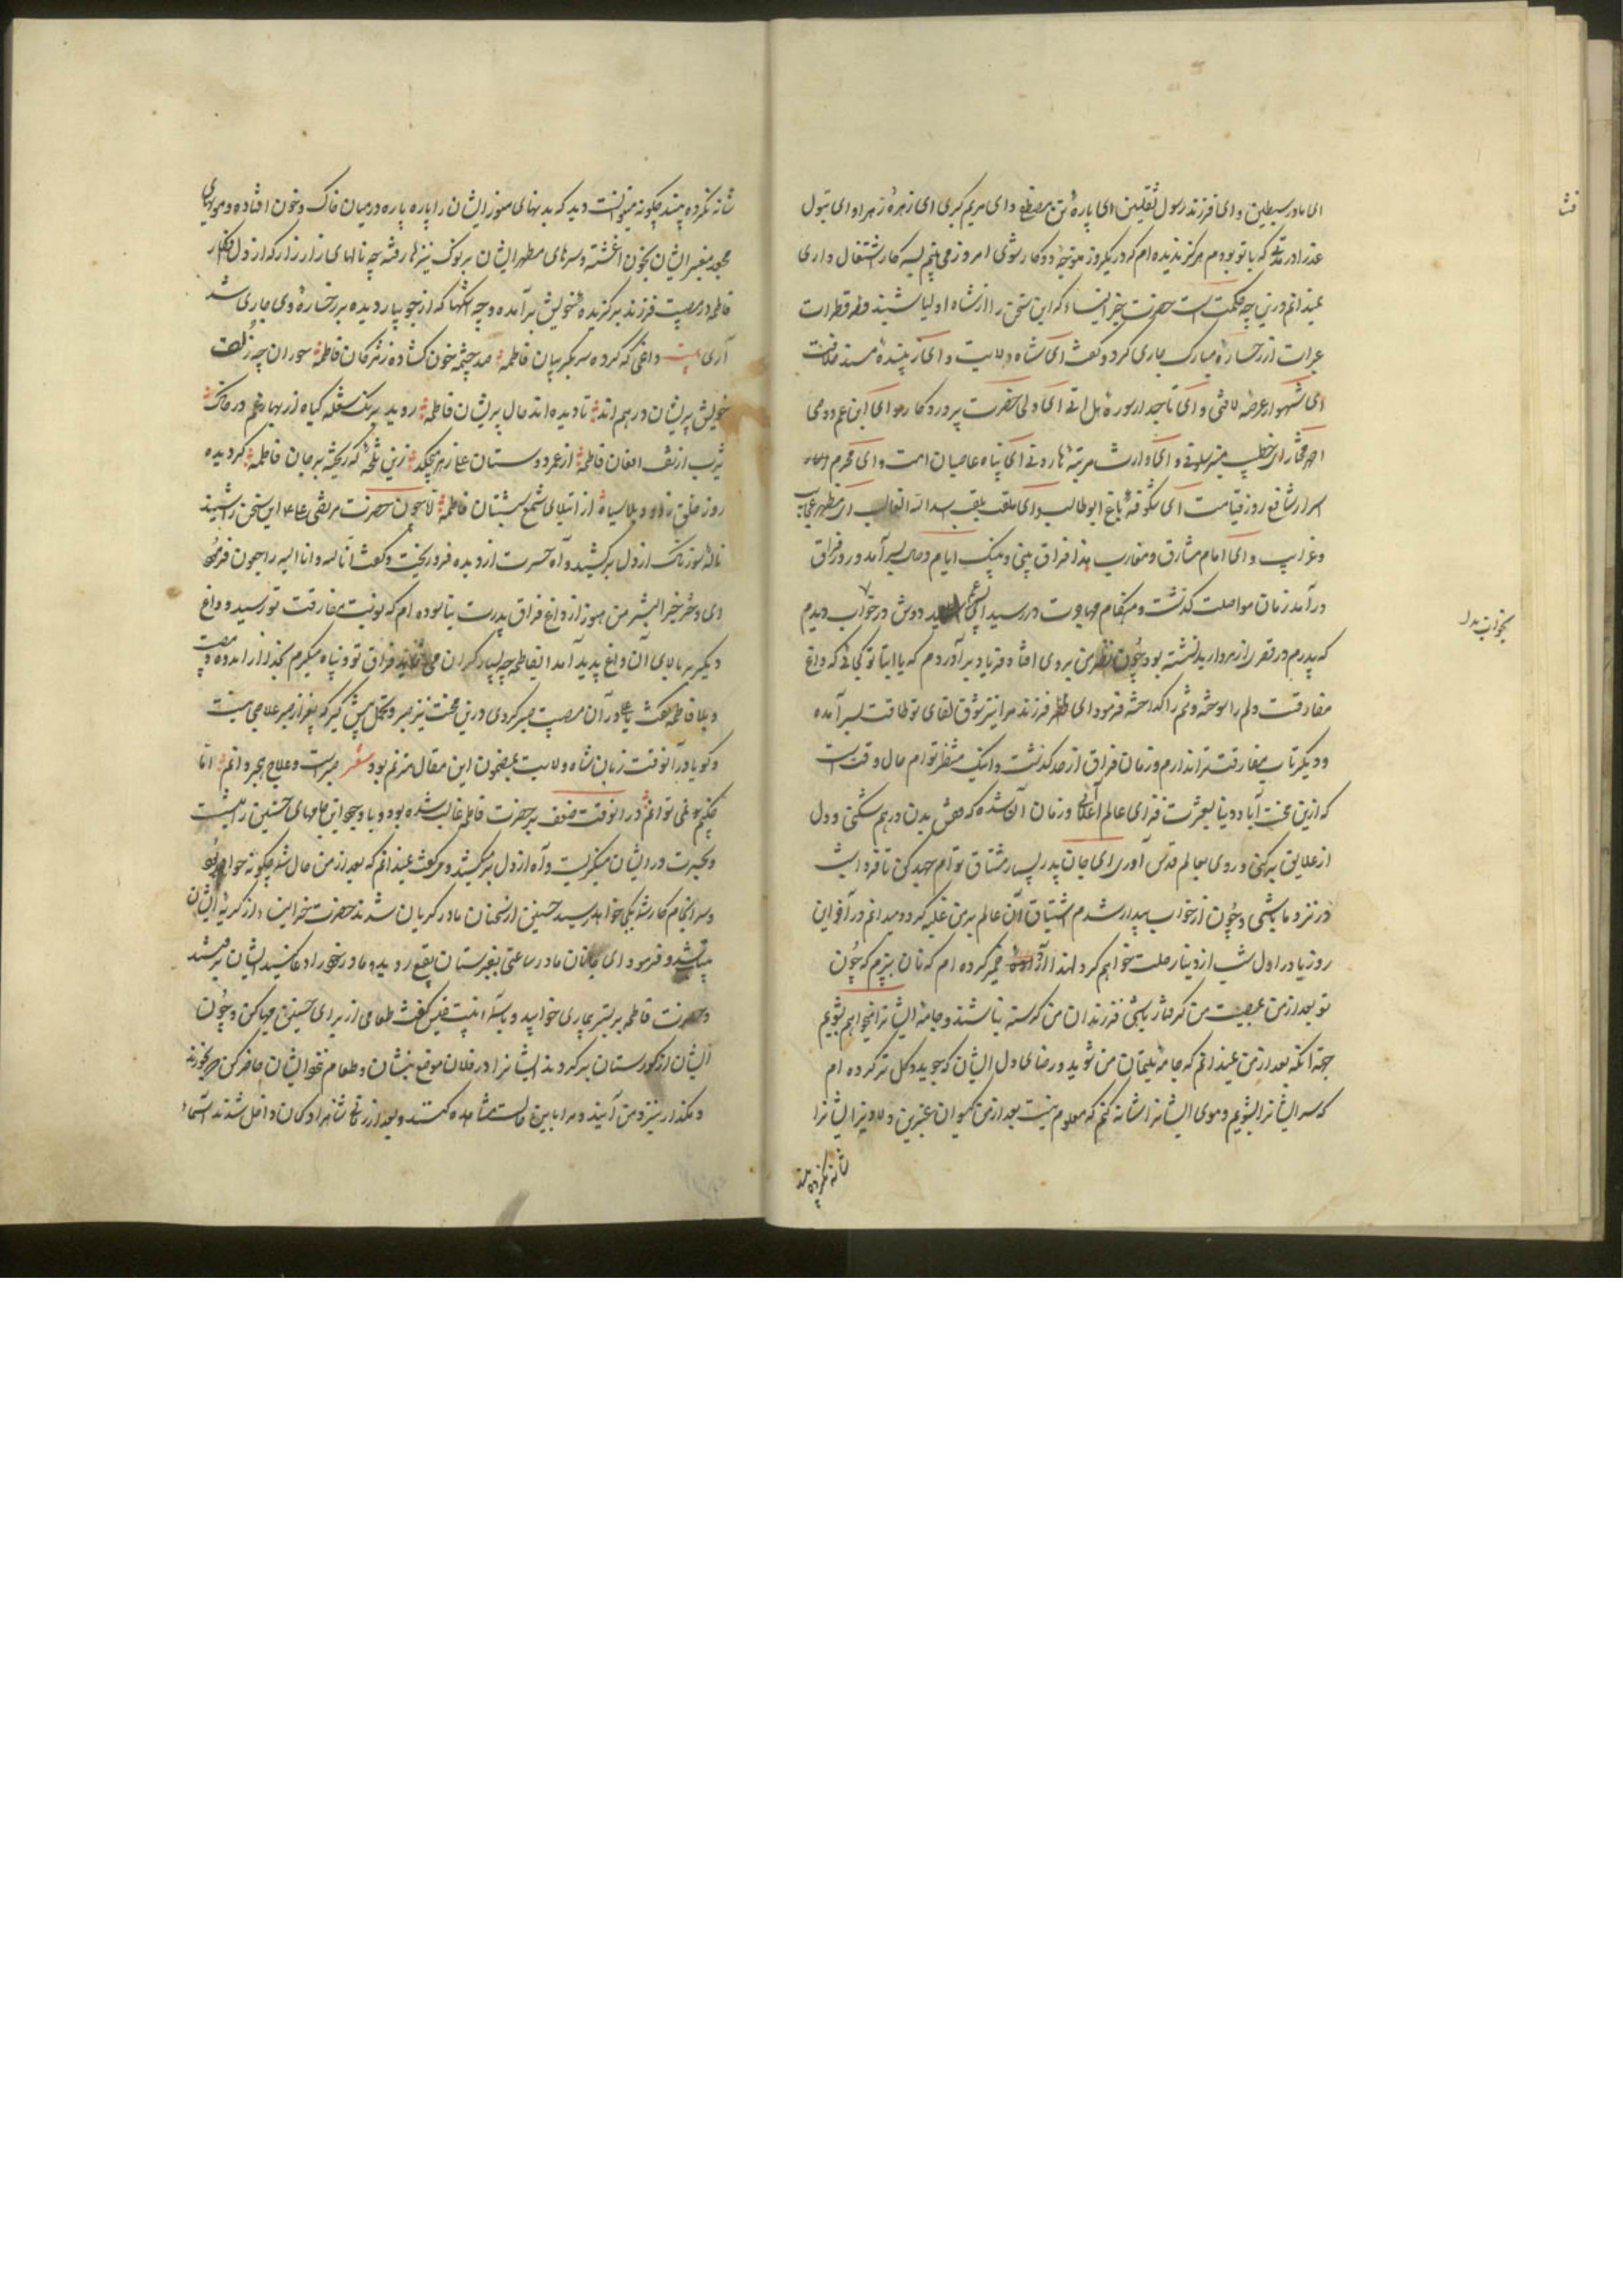 ای مادر سبطین و ای فرزند رسول ثقلین ای پاره تن مصطفی و ای مریم کبری ای زهره زهرا و ای بتول
عذرا در مدتی که با تو بودم هرگز ندیده ام که در یکروز متوجه دو کار شوی امروز می بینم که سه کار اشتغال داری
نمیدانم درین چه حکمت است حضرت خیر النساء که این سخن را از شاه اولیا شنید قطرات
عبرات از رخساره مبارک جاری کرد و گفت ای شاه ولایت و ای برازنده مسند خلافت
ای شهسوار عرصه لافتی و ای تاجدار سوره هل اتی ای ولی حضرت پروردکار و ای ابن عم و وصی
احمد مختار ای خطیب منبر سلونی و ای وارث مرتبه هارونی ای پناه عاصیان امت و ای محرم
اسرار شافع روز قیامت ای شکوفه باغ ابو طالب و ای ملقب بلقب اسد الله الغالب ای مظهر عجایب
و غرایب و ای امام مشارق و مغارب هذا فراق بینی و بینک ایام وصال بسر آمد و روز فراق
در آمد زمان مواصلت کذشت و هنکام مهاجرت در رسید ای دوش در خواب دیدم
که پدرم در قصری از مروارید نشسته بود چون نظر من بروی افتاد فریاد برآوردم که یا ابتا تو کجائی که داغ
مفارقت دلم را سوخته و تنم را کداخته فرمود ای فرزند مرا نیز شوق لقای تو طاقت بسر آمده
و دیکر تاب مفارقت ترا ندارم و زمان فراق از حد کذشت و اینک منتظر تو ام حال وقت است
که ازین محنت آباد دنیا بعشرت فزای عالم اعلی و زمان آن شده که قفس بدن درهم شکنی و دل
از علایق برکنی و روی بعالم قدس آوری ای جان پدر بسیار مشتاق تو ام جهد کن تا فردا شب
در نزد ما باشی و چون از خواب بیدار شدم اشتیاق آن عالم بر من غلبه کرد و میدانم در آخر این
روز یا در اول شب از دنیا رحلت خواهم کرد لهذا آرد خمیر کرده ام که نان بپزم که چون
تو بعد از من بمصیبت من کرفتار باشی فرزندان من کرسنه نباشند و جامه ایشانرا میخواهم بشویم
جهة آنکه بعد از من نمیدانم که جامه یتیمان من شوید و رضای دل ایشان که جوید و کل تر کرده ام
که سر ایشانرا بشویم و موی ایشانرا شانه کنم که معلوم نیست بعد از من کیسوان عنبرین و دلاویز ایشانرا
شانه نکرده بیند
بخواب
شانه نکرده بیند چکونه میتوانست دید که بدنهای منور ایشان را پاره پاره در میان خاک و خون افتاده و مویهای
مجعد معنبر ایشان بخون آغشته و سرهای مطهر ایشان بر نوک نیزها رفته چه نالهای زار زار که از دل افکار
فاطمه در مصیبت فرزند برگزیده خویش برآمده و چه اشکها که از جویبار دیده بر رخساره وی جاری شد
آری بیت داغی که کرده سر بگریبان فاطمه صد چشمه خون کشاده ز مژکان فاطمه حوران چه زلف
خویش پریشان و درهم اند تا دیده اند حال پریشان فاطمه روید برنک شعله گیاه از بهار غم در خاک
یثرب از تف افغان فاطمه از عمر دوستان علی زهر میچکد زین تلخیی که ریخته بر جان فاطمه کردیده
روز خلق ز اندوه و بلا سیاه از ابتلای شمع شبستان فاطمه تا چون حضرت مرتضی علی این سخن را شنید
ناله سوزناک از دل برکشید و آه حسرت از دیده فرو ریخت و گفت انا لله و انا الیه راجعون فرمود
ای دختر خیر البشر من هنوز از داغ فراق پدرت نیاسوده ام که نوبت مفارقت تو رسید و داغ
دیکر بر بالای آن داغ پدید آمد ای فاطمه چه بسیار کران می نماید فراق تو و پناه میبرم بخدا از اندوه و مصیبت
و بلا فاطمه گفت یا علی در آن مصیبت صبر کردی درین محنت نیز صبر و تحمل پیش کیر که بغیر از صبر علاجی نیست
و کویا در آنوقت زبان شاه ولایت بمضمون این مقال مترنم بود شعر صبر است علاج هجر دانم اما
چکنم نمی توانم در آنوقت ضعف بر حضرت فاطمه غالب شده بود و با وجود این جامهای حسنین را میشست
و بحسرت در ایشان مینکریست و آه از دل برمیکشید و میگفت نمیدانم که بعد از من حال شما چکونه خواهد بود
و سر انجام کار شما بکجا خواهد رسید حسنین از سخنان مادر کریان شدند حضرت خیر النساء از کریه ایشان
بیتاب شد و فرمود ای جانان مادر ساعتی بقبرستان بقیع روید و مادر خود را دعا کنید ایشان برفتند
و حضرت فاطمه بر بستر بیماری خوابید و با اسماء بنت عمیس گفت طعامی از برای حسنین مهیا کن و چون
ایشان از کورستان برکردند ایشانرا در فلان موضع بنشان و طعام نزد ایشان حاضر کن که بخورند
و مکذار نزد من آیند و مرا باین حالت مشاهده کنند و بعد از زمانی شاهزادکان داخل شدند اسماء